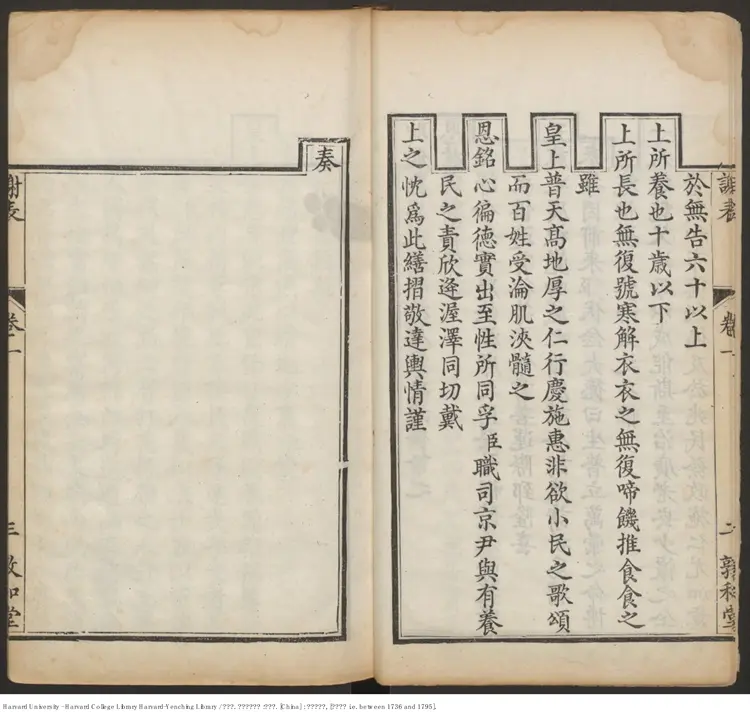 謝表
卷一
二
敦和堂
於無告六十以上
上所養也十歲以下
上所長也無復號寒解衣衣之無復啼饑推食食之
雖
皇上普天高地厚之仁行慶施惠非欲小民之歌頌
而百姓受淪肌浹髓之
恩銘心徧德實出至性所同孚臣職司京尹與有養
民之責欣逢渥澤同切戴
上之忱爲此繕摺敬達輿情謹
奏
謝表
卷一
三
敦和堂
Harvard University - Harvard College Library Harvard-Yenching Library / ???. ?????? : ???. [China] : ?????, [???? ie. between 1736 and 1795].